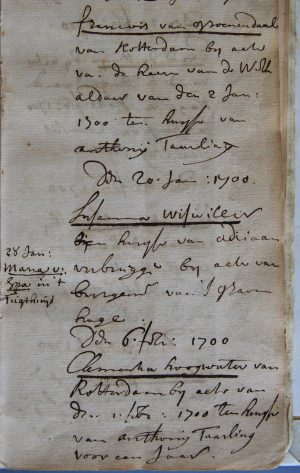 francois van
van Rotterdam bij acte
van de heere van de
aldaer van den 2 Jan:
1700 ten huijse van
anthonij Taarling
Den 20 Jan: 1700
Susanna Wiswiller
ten huijse van adriaan
verbrugge bij acte van
van S Graven
hage
28 Jan:
Maria v:
in t
Den 6 febr: 1700
Clementia hoogwater van
Rotterdam bij acte van
den 1 febr: 1700 ten huijse
van anthonij Taarling
voor een Jaar.